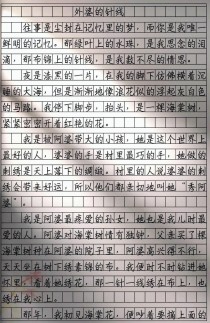 外婆的针线
往事是尘封在记忆里的梦，而你是我唯一
鲜明的记忆。那绿叶上的水珠，是我思念的泪
滴，那布锦上的针线，是我数不尽的情思。
夜是漆黑的一片，在我的脚下仿佛横着沉
的马路。但是渐渐地像浪花似的浮起灰白色
的马路。我停下脚步，抬头，是一棵海棠树，
紧紧密密开着红艳的花。
我是被阿婆带大的小孩，她是这个世界上
最好的人，婆婆的手是村里最巧的手，她做的
刺绣是天上落下的绸缎。村里的人说婆婆的刺
绣会带来好运，所以他们都亲切地叫她“秀阿
婆”。
我是阿婆最疼爱的孙女，她也是我儿时最
爱的人。阿婆对海棠树情有独钟，父亲买了一
棵海棠树种在阿婆的院子里，阿婆高兴得不行，
天天坐在树下绣素锦的布。我便时不时钻进她
怀里，看着她绣花，那一针一线绣在布上，也
绣在我心上。
那年，我初见海棠花，便吵着要摘上面的